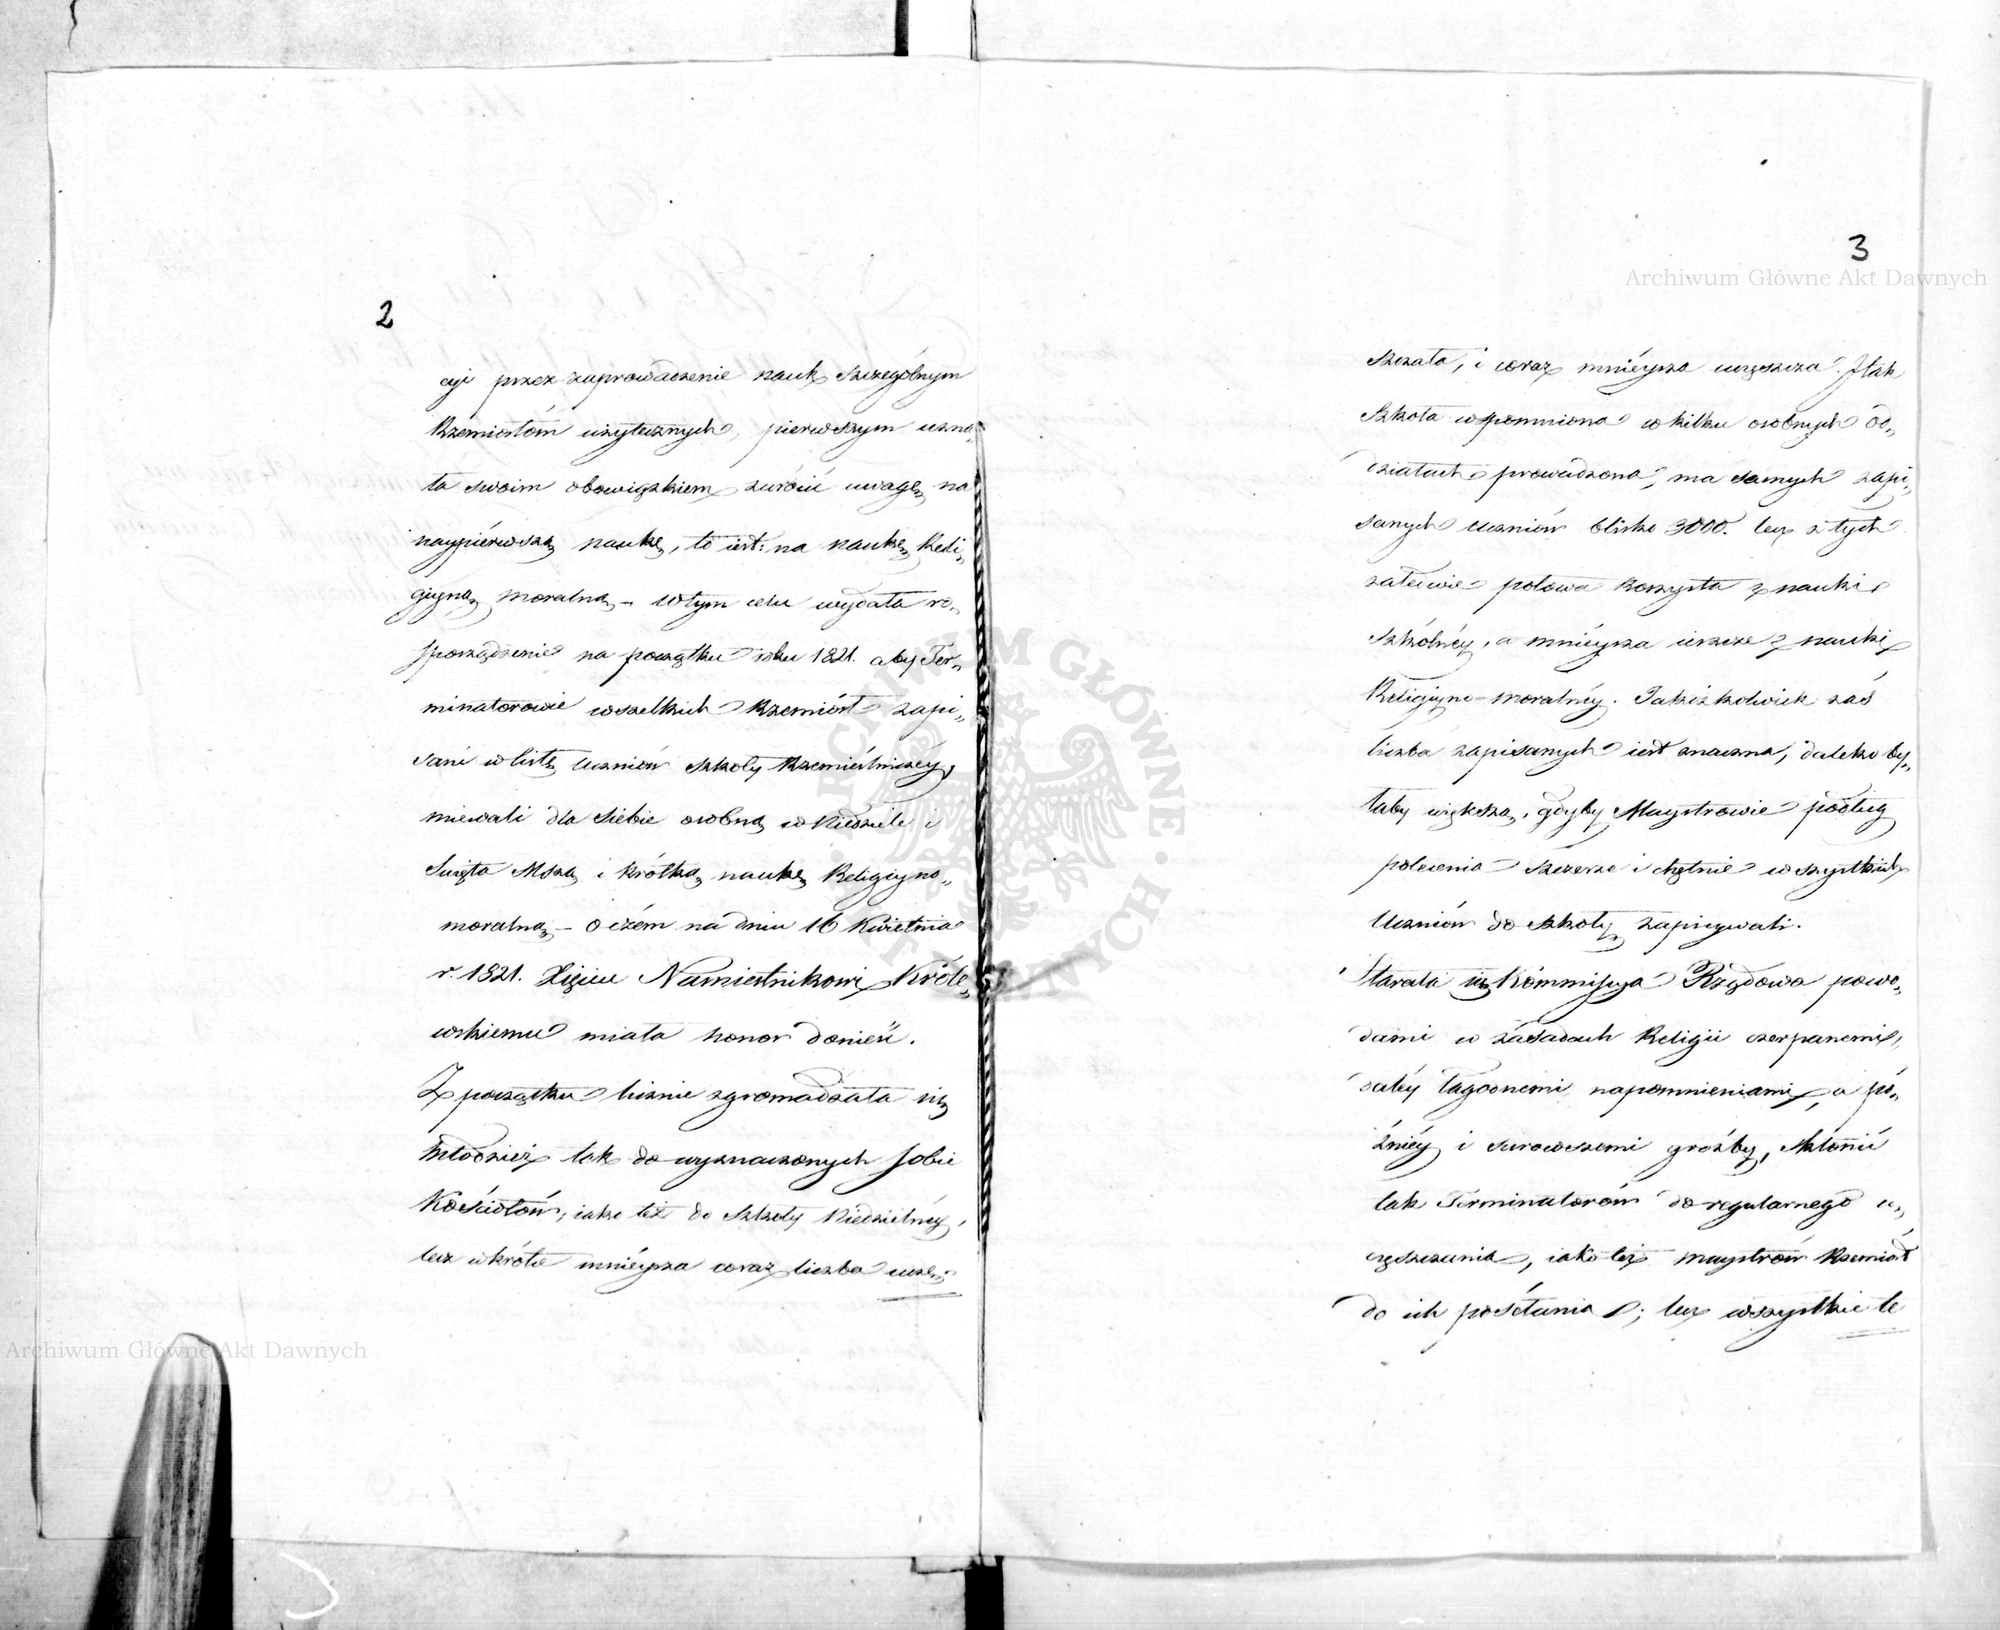 2
cyi przez zaprowadzenie nauk szczególnym
Rzemiosłom użytecznych, pierwszym uzna„
ła swoim obowiązkiem zwrócić uwagę na
naypiérwszą naukę, to iest: na naukę Reli„
giyną moralną – w tym celu wydała ro„
sporządzenie na początku roku 1821. aby Ter„
minatorowie wszelkich Rzemiósł zapi„
sani w listę Uczniów szkoły Rzemieślniczéy,
miewali dla siebie osobną w Niedziele i
Święta Mszą i krótką naukę Religiyno„
moralną – o czém na dniu 16 Kwietnia
r. 1821. Xięciu Namiestnikowi Króle„
wskiemu miała honor donieść.
Z początku licznie zgromadzała się
Młodzież tak do wyznaczonych sobie
Kościołów, iako też do szkoły Niedzielnéy,
lecz wkrótce mniéysza coraz liczba uczę„
3
szczała, i coraz mniéysza uczęszcza. I tak
szkoła wspomniona w kilku osobnych od„
działach prowadzona, ma samych zapi„
sanych uczniów blisko 3000. lecz z tych
zaledwie połowa korzysta z nauki
szkólnéy, a mniéysza ieszcze z nauki
Religiyno-moralnéy. Jakażkolwiek zaś
liczba zapisanych iest znaczna, daleko by„
łaby większą, gdyby Maystrowie podług
polecenia szczerze i chętnie wszystkich
Uczniów do szkoły zapisywali.
Starała się Kommissya Rządowa powo„
dami w zasadach Religii czerpanemi,
daléy łagodnemi napomnieniami, a pó„
źniéy i surowszemi groźby, skłonić
tak Terminatorów do regularnego u„
częszczania, iako też maystrów Rzemiósł
do ich posełania; lecz wszystkie te
Archiwum Główne Akt Dawnych
Archiwum Główne Akt Dawnych